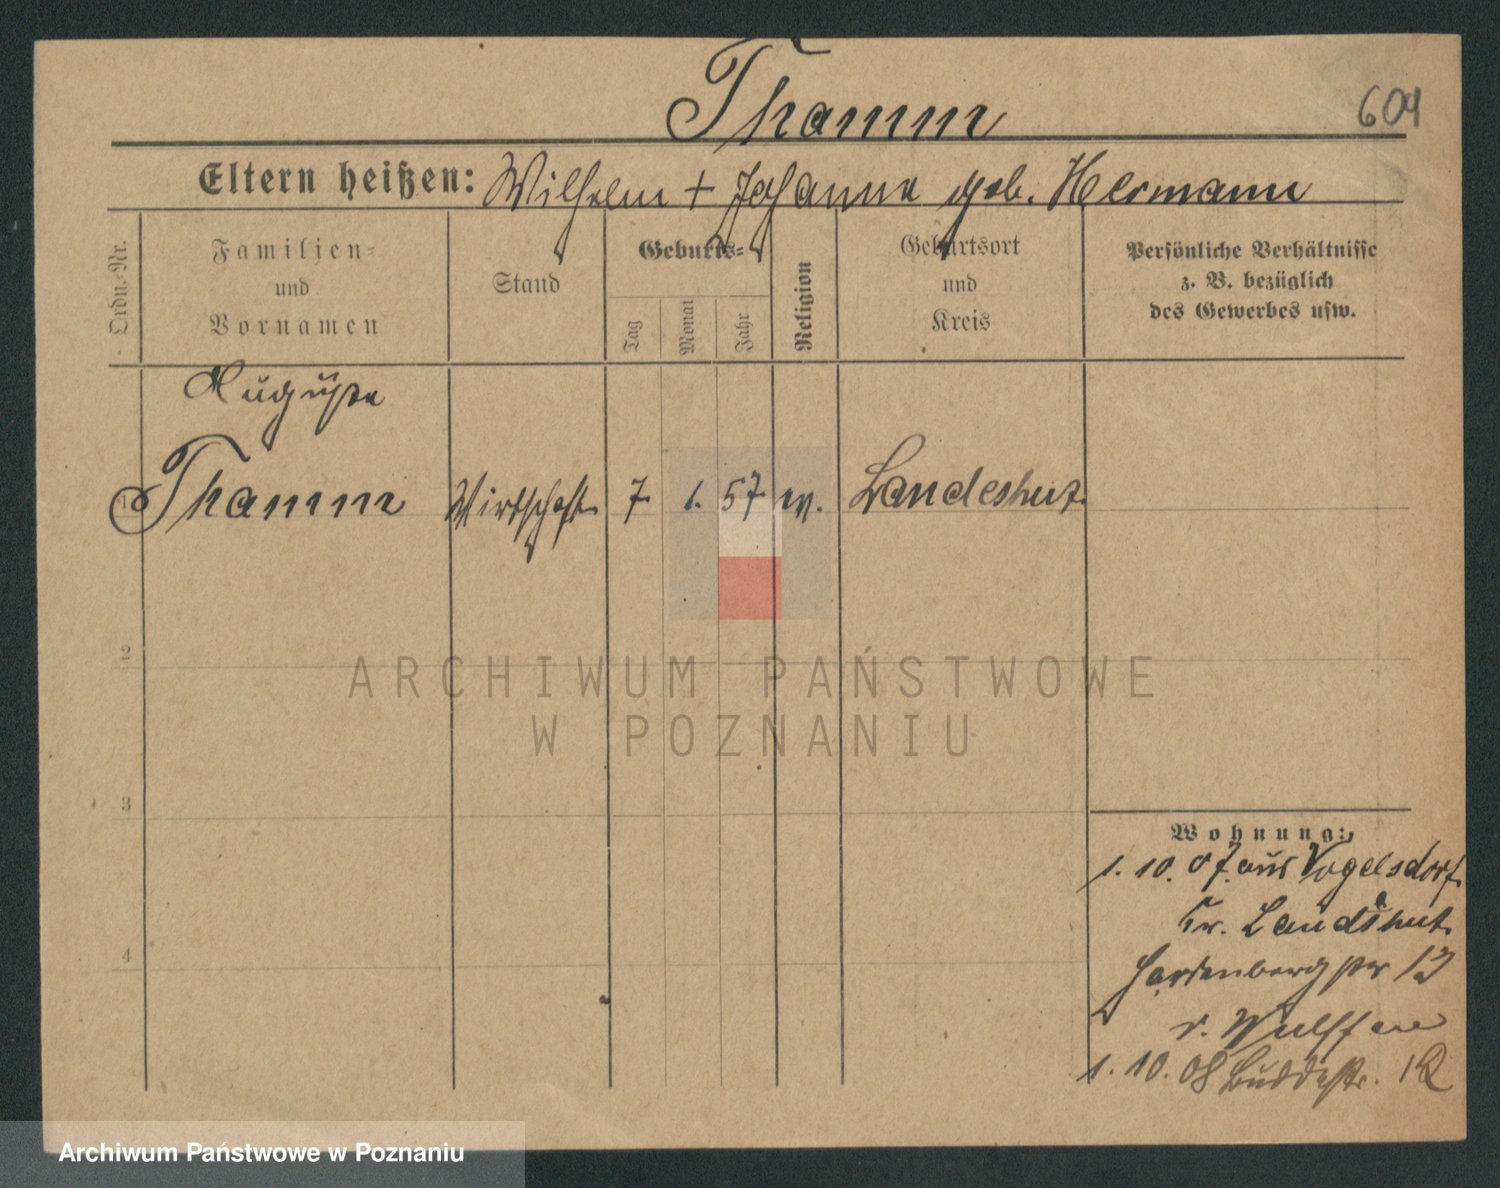 Thamm
609
Eltern heißen: Wilhelm + Johanna geb. Hermann
Ordn.-Nr.
Familien-
und
Vornamen
Stand
Geburts-
Tag
Monat
Jahr
Religion
Geburtsort
und
Kreis
Persönliche Verhältnisse
z. B. bezüglich
des Gewerbes usw.
Auguste
1 Thamm Wirtschaft. 7. 1. 57. ev. Landeshut
2
ARCHIWUM PAŃSTWOWE
W POZNANIU
3
Wohnung:
1. 10. 07. aus Vogelsdorf
Kr. Landeshut
4
Hardenbergstr 13
v. Wulffen
1. 10. 08 Buddestr. 12
Archiwum Państwowe w Poznaniu